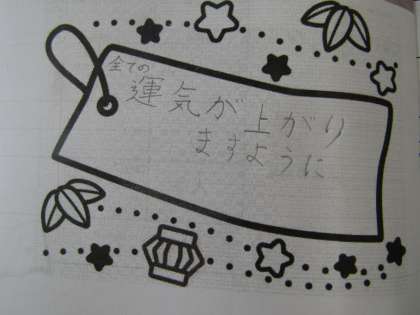 全ての
運気が上がり
ますように